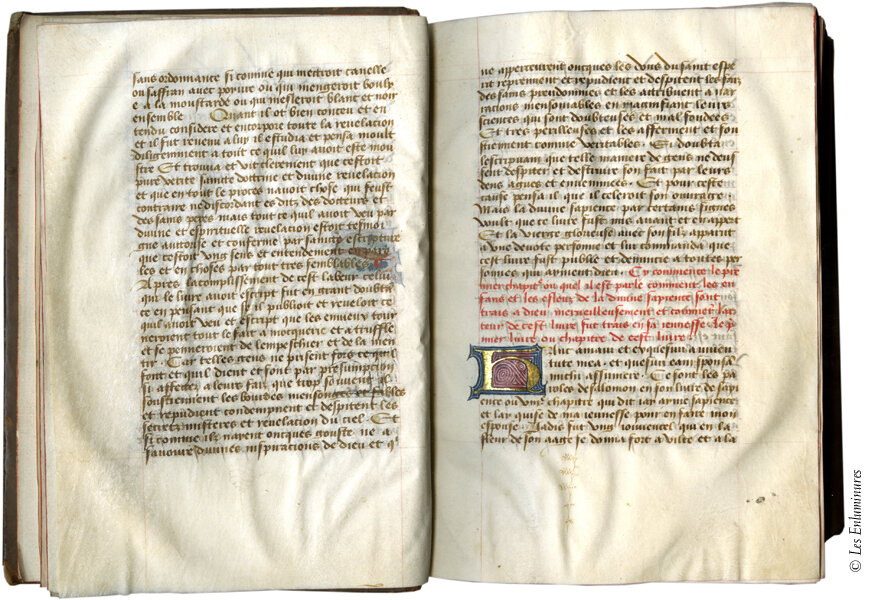 sans ordonnance si comme qui mettroit canelle
ou saffran avec poivre ou qui mengeroit bouly
e a la moustarde ou qui mesleroit blanc et noir
ensemble Quant il ot bien conceu et en
tendu considere et encorpore toute la revelation
et il fut revenu a luy il estudia et pensa moult
diligemment a tout ce quil luy avoit este mou
stre Et trouva et vit clerement que cestoit
pure verite sainte dottrine et divine revelation
et que en tout le proces navoit chose qui feust
contraire ne discordant es ditz des dotteurs et
des sains peres mais tout ce quil avoit veu par
divine et espirituelle revelation estoit tesmoi
gne autorise et conferme par sainte escripture
que cestoit vng sens et entendement en paro
les et en choses par tout tres semblables
Apres lacomplissement de cest labeur celui
qui le livre avoit escript fut en grant doubta
ce en pensant que se il publioit et reveloit ce
quil avoit veu et escript que les envieux tour
neroient tout le fait a mocquerie et a truffle
et se penneroient de lempeschier et de la men
tir Car telles gens ne prisent fors ce quil
font et quil dient et sont par presumption
si affettez a leur fait que trop souvent ilz
soustiennent les bourdes mensonges et fables
et repudient condempnent et despitent les
secretz misteres et revelation du ciel Et
si comme ilz nayent oncques gouste ne a
savoure divines inspirations de dieu et q
ne apperceurent oncques les dons du saint espe
rit reprennent et repudient et despitent les faiz
des sains preudommes et les attribuent a nar
rations mensonables en magnifiant leurs
sciences qui sont doubteuses et mal fondees
Et tres perilleuses et les afferment et sou
stiennent comme veritables Si doubta
lescripuant que telle maniere de gens ne deus
sent despiter et destruire son fait par leurs
dens agues et enuenimees Et pour ceste
cause pensa il que il celeroit son ouvrage
Mais la divine sapience par certains signes
vault que ce livre fust mis avant et
Et la vierge glorieuse avec son filz apparut
a vne devote personne et luy commanda que
cest livre fust publie et denuncie a toutes per
sonnes qui ayment dieu Cy commence le pre
mier chapitre ou quel il est parle comment les en
fans et les esleuz de la divine sapience sont
trais a dieu merveilleusement et comment lac
teur de cest livre fut trais en sa jeunesse le p
mier livre ou chapitre de cest livre
Anc amavi et exquesivi a iuuen
tute mea et quesivi eam sponsam
michi assumere Ce sont les pa
roles de salomon en son livre de sapi
ence ou chapitre qui dit iay ayme sapience
et lay quise de ma jeunesse pour en faire mon
espouse Jadis fut vng jouvencel qui en la
fleur de son aage se donna fort a vilte et a la
© Les Enluminures